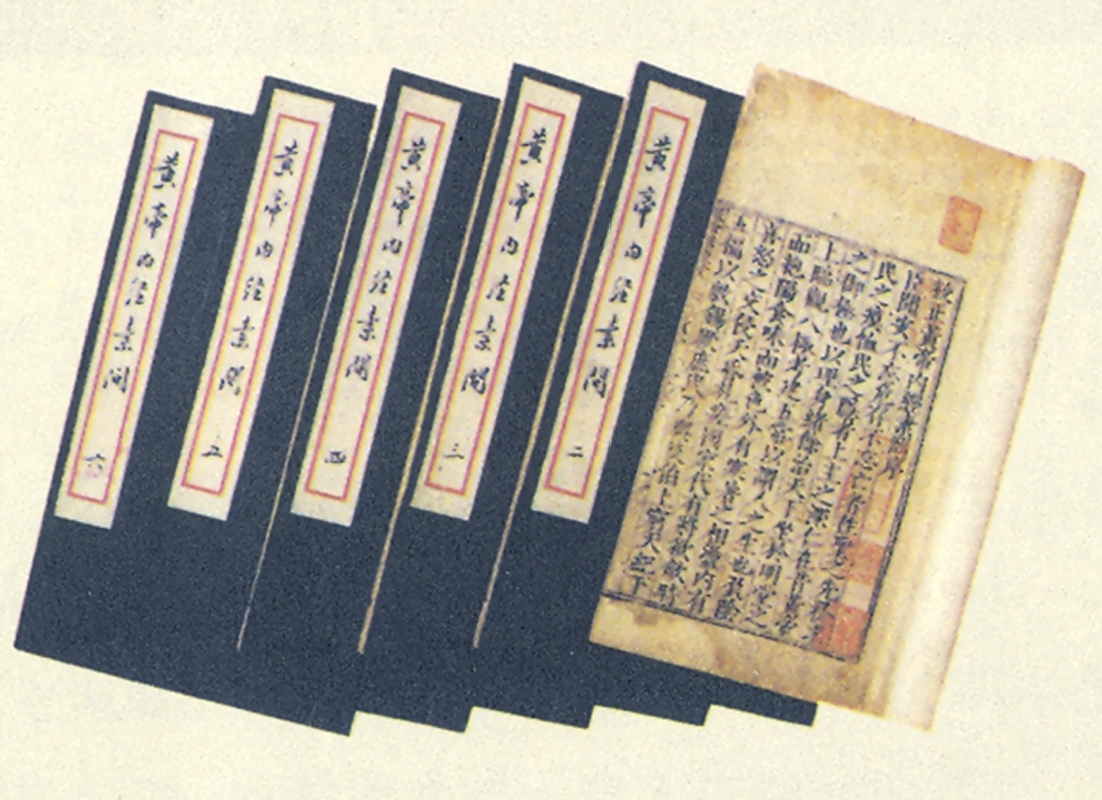 校正黃帝內經素問序
臣聞安不忘危存不忘亡者往聖之先務求
民之瘼恤民之隱者上主之深仁在昔黃帝
之御極也以理身緒餘治天下坐於明堂之
上臨觀八極考建五常以謂人之生也負陰
而抱陽食味而被色外有寒暑之相盪內有
喜怒之交侵夭昏札瘥國家代有將欲斂時
五福以敷錫厥庶民乃與岐伯上窮天紀下
黃帝內經素問 二
黃帝內經素問 三
黃帝內經素問 四
黃帝內經素問 五
黃帝內經素問 六